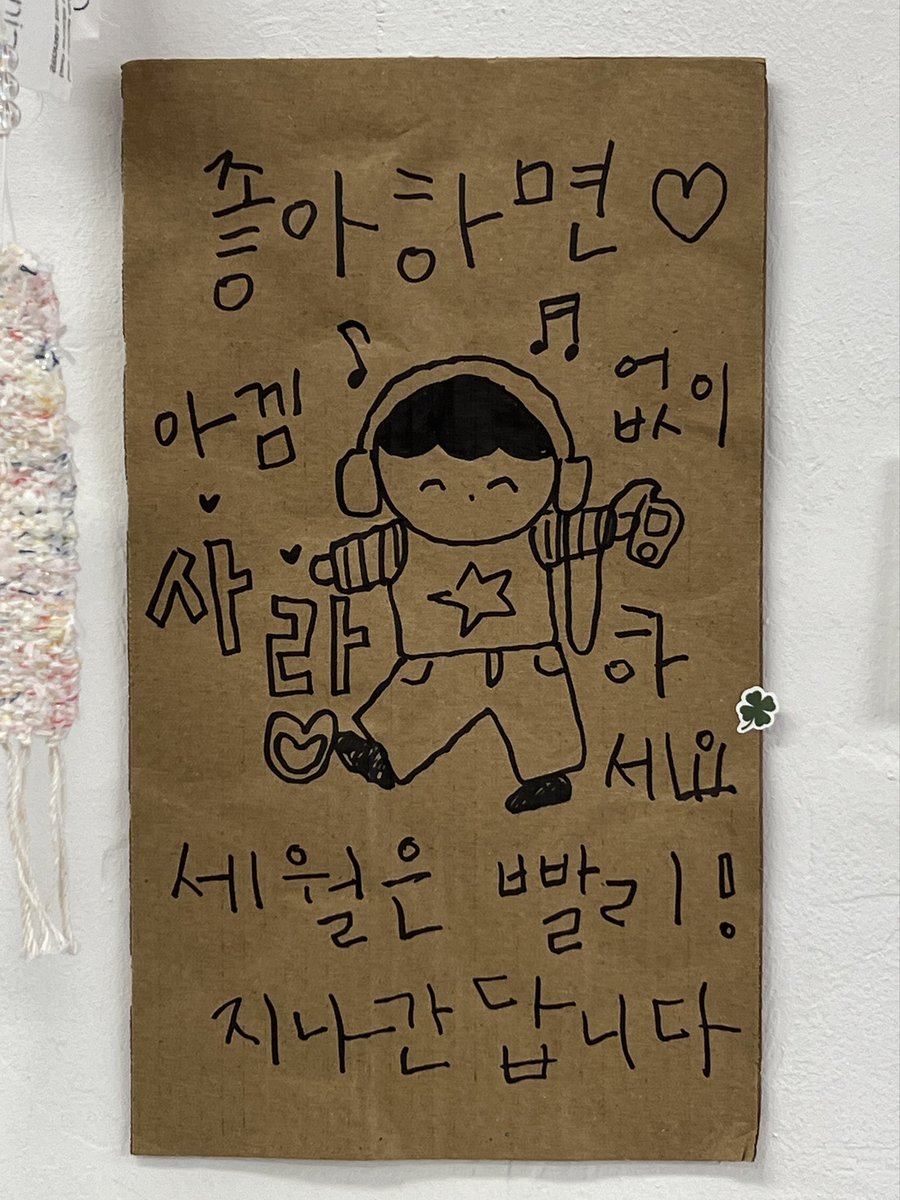 좋아하면♡
아낌 없이
사랑 하
세요
세월은 빨리!
지나간답니다